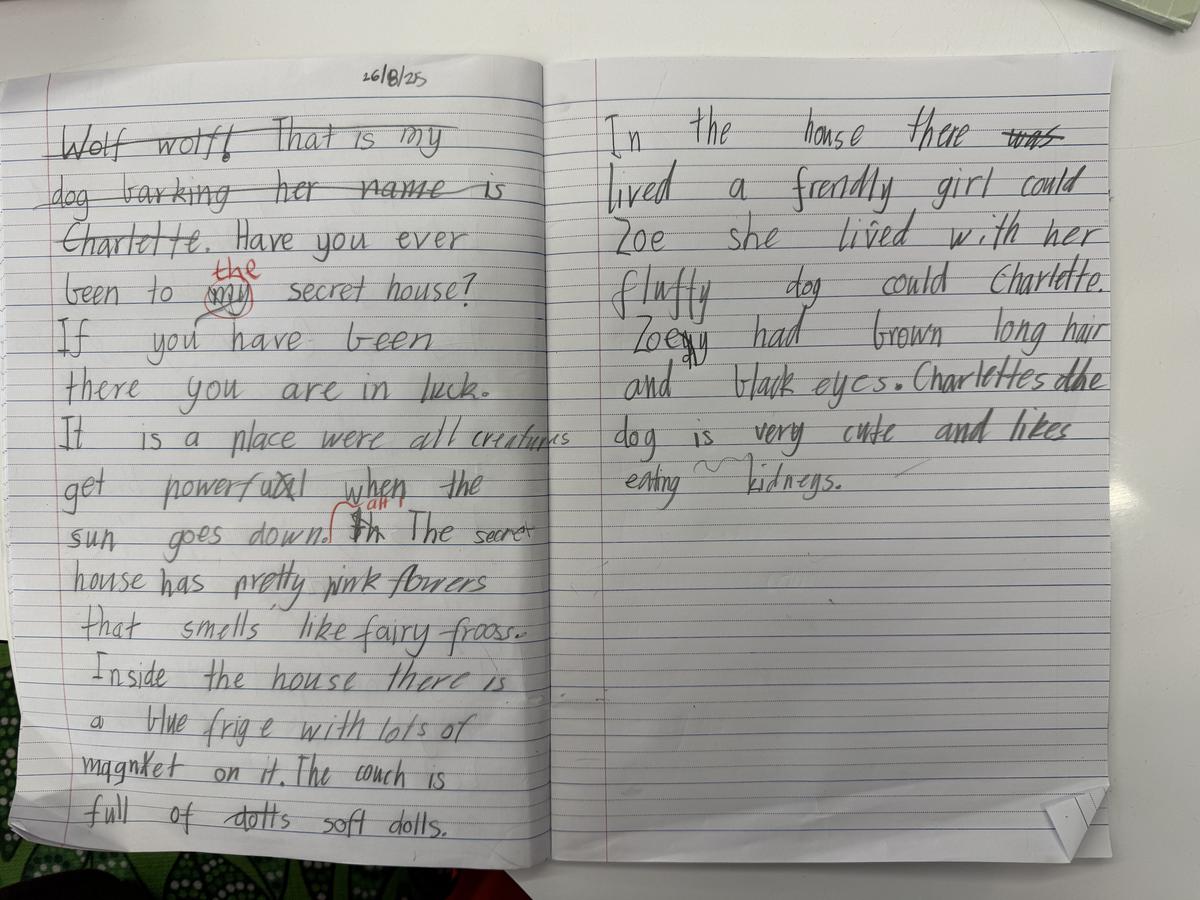 26/8/25
Wolf wolf! That is my
dog barking her name is
Charlette. Have you ever
the
been to my secret house?
If you have been
there you are in luck.
It is a place were all creatures
get powerful when the
sun goes down. Th The secret
house has pretty pink flowers
that smells like fairy frooss.
Inside the house there is
a blue frige with lots of
magnet on it. The couch is
full of dotts soft dolls.
In the house there was
lived a frendly girl could
Zoe she lived with her
fluffy dog could Charlette.
Zoey had brown long hair
and black eyes. Charlettes the
dog is very cute and likes
eating kidneys.